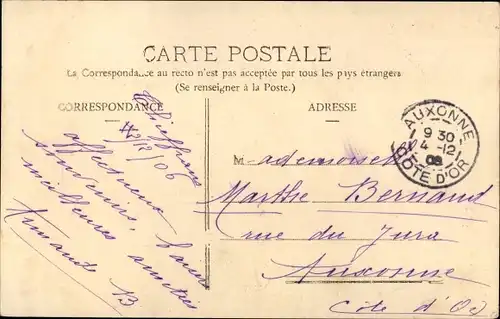 CARTE POSTALE
La Correspondance au recto n'est pas acceptée par tous les pays étrangers
(Se renseigner à la Poste.)
CORRESPONDANCE
ADRESSE
12/06
affectueux
souvenirs, baisers
meilleures amitiés
Fernande B
AUXONNE
9 30
4-12
08
COTE D'OR
Mademoiselle
Marthe Bernard
rue du Jura
Auxonne
Côte d'Or